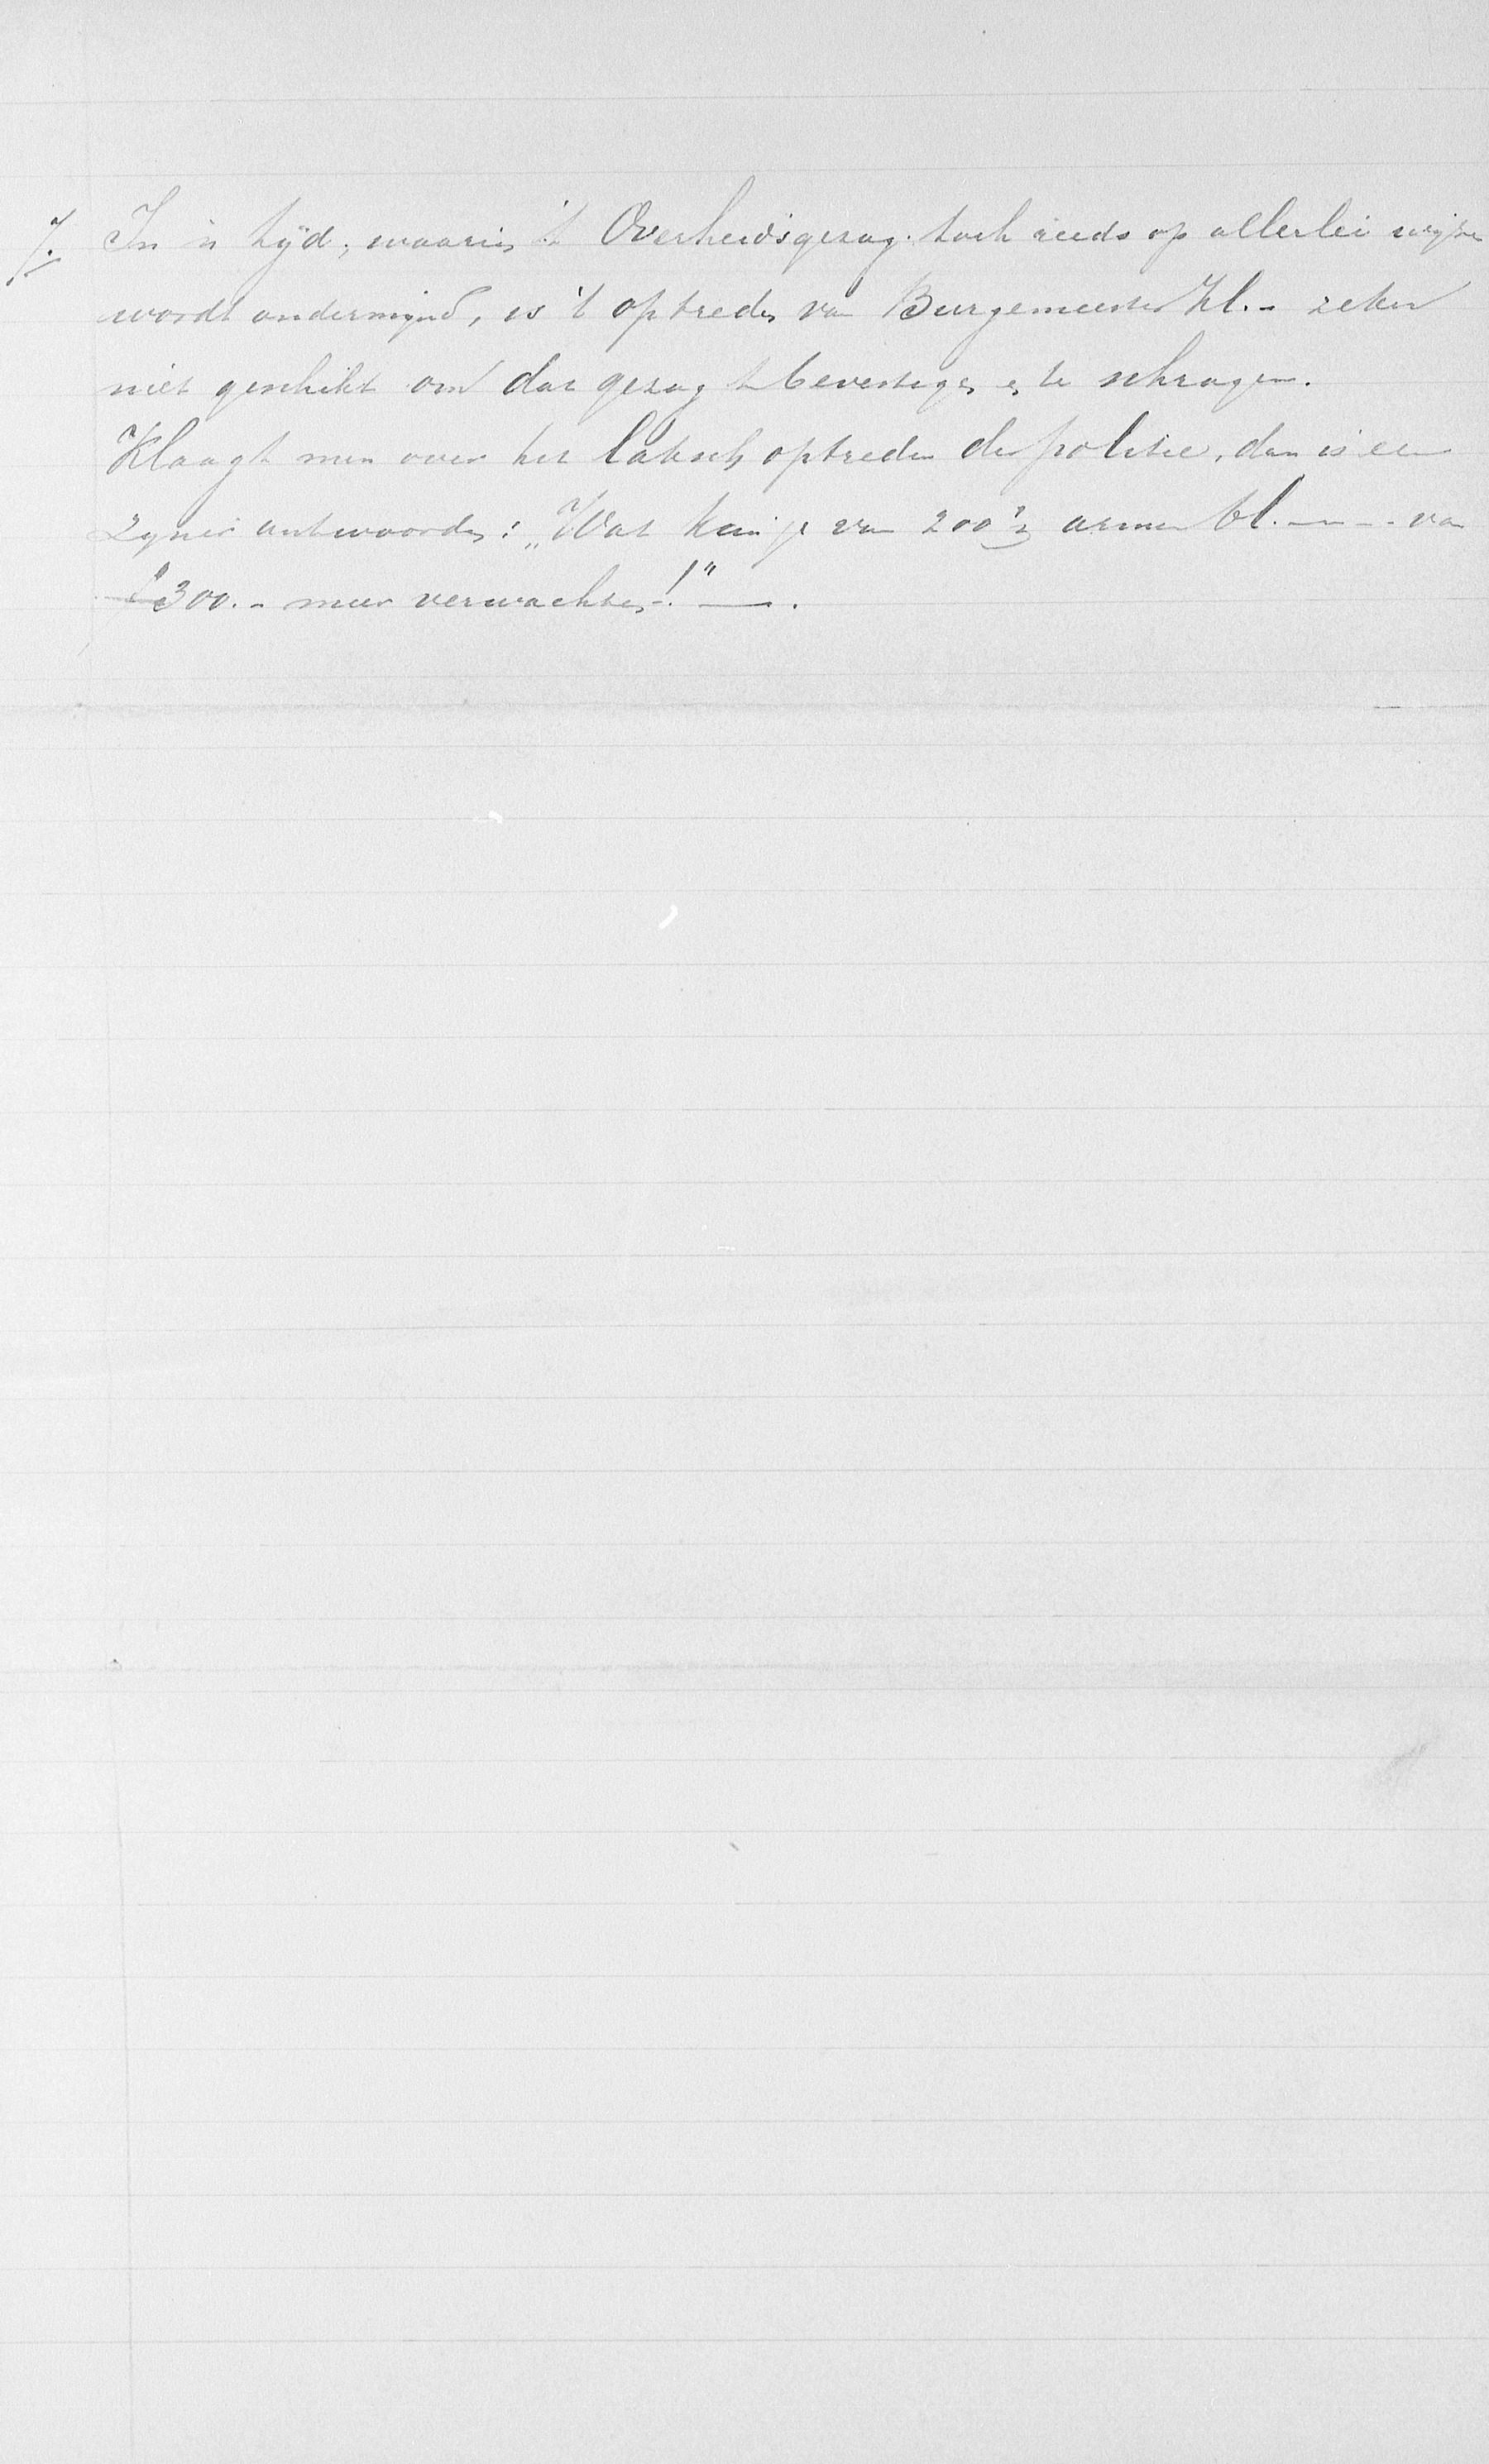 7. In 'n tijd, waarin 't Overheidsgezag toch reeds op allerlei wijze
wordt ondermijnd, is 't optreden van Burgemeester Kl. - zeker
niet geschikt om dat gezag te bevestigen en te schragen.
Klaagt men over het laksch optreden der politie, dan is een
zijner antwoorden: „Wat kan je van zoo'n armen bl. — - - van
f 300.- meer verwachten!" —.